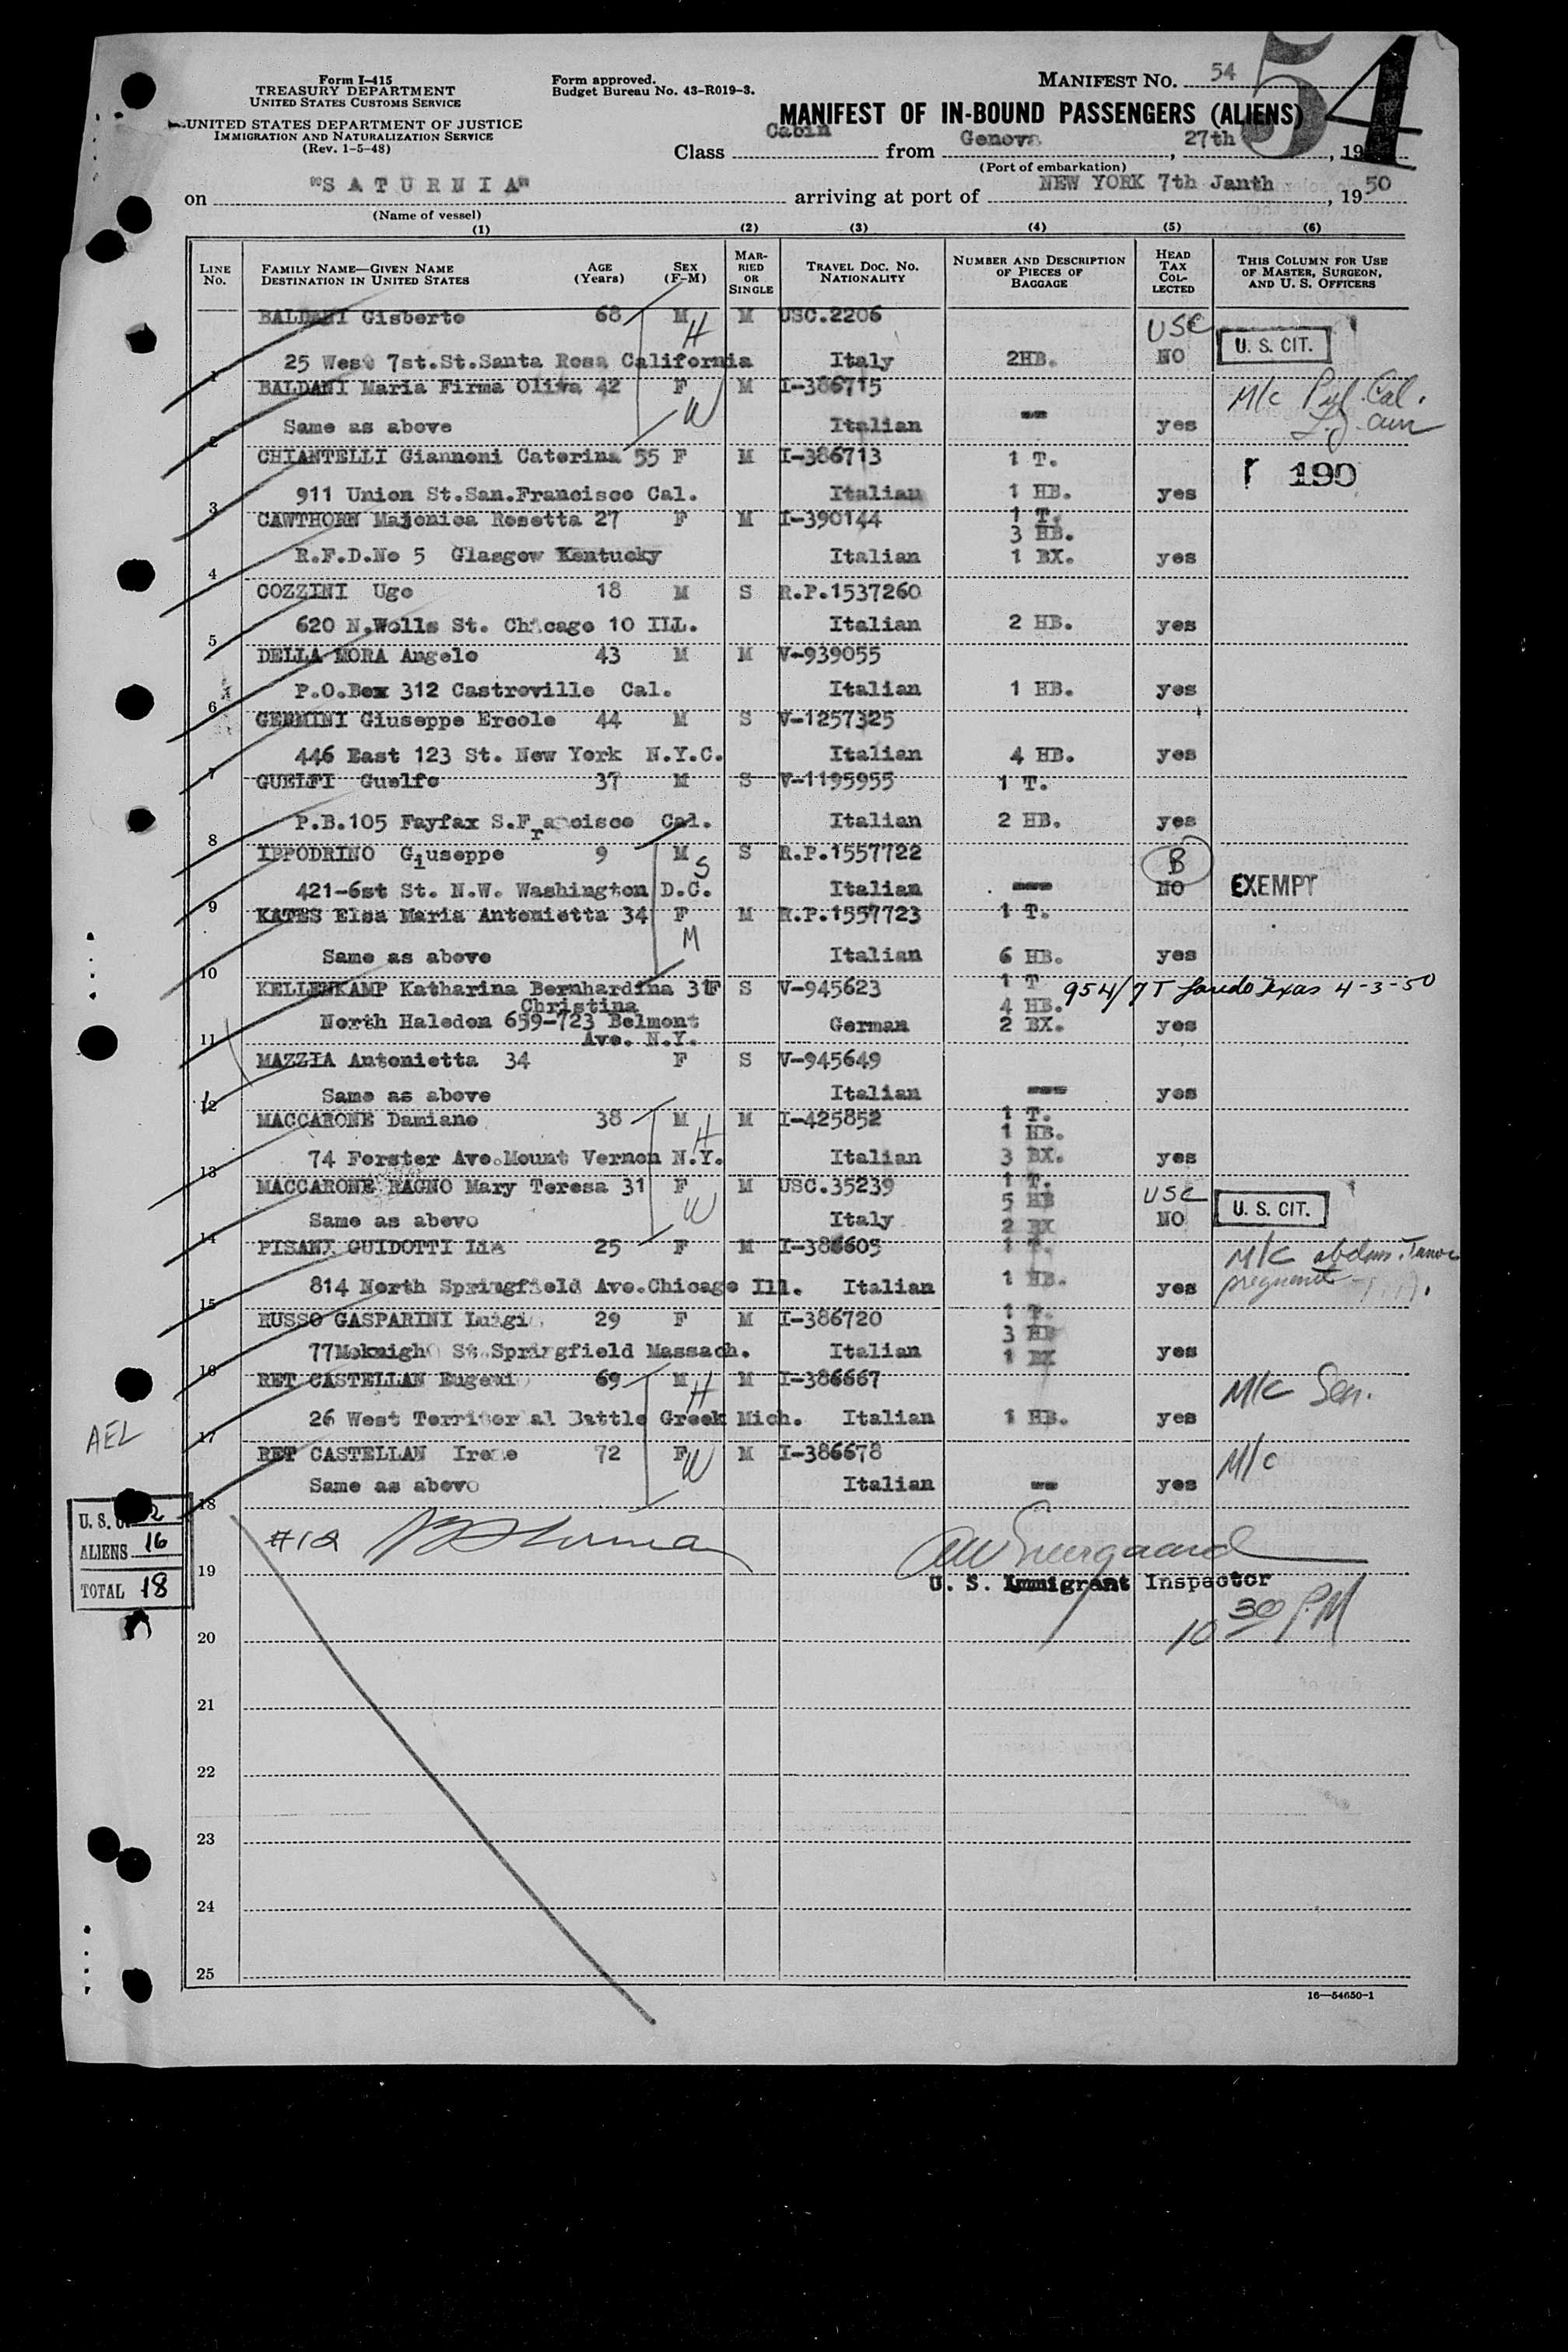 Form I-415
TREASURY DEPARTMENT
UNITED STATES CUSTOMS SERVICE
UNITED STATES DEPARTMENT OF JUSTICE
IMMIGRATION AND NATURALIZATION SERVICE
(Rev. 1-5-48)
Form approved.
Budget Bureau No. 43-R019-3.
MANIFEST NO. 54
54
MANIFEST OF IN-BOUND PASSENGERS (ALIENS)
Class Cabin from Genova, 27th, 19
(Port of embarkation)
on "SATURNIA" arriving at port of NEW YORK 7th Janth, 1950
(Name of vessel)
(1) (2) (3) (4) (5) (6)
LINE NO. FAMILY NAME—GIVEN NAME DESTINATION IN UNITED STATES AGE (Years) SEX (F-M) MARRIED OR SINGLE TRAVEL DOC. NO. NATIONALITY NUMBER AND DESCRIPTION OF PIECES OF BAGGAGE HEAD TAX COLLECTED THIS COLUMN FOR USE OF MASTER, SURGEON, AND U. S. OFFICERS
BALDANI Gisberto 68 M H M USC.2206 USC
1 25 West 7st.St.Santa Rosa California Italy 2HB. NO U. S. CIT.
BALDANI Maria Firma Oliva 42 F W M I-386715 M/c
2 Same as above Italian -- yes
CHIANTELLI Giannoni Caterina 55 F M I-386713 1 T. 190
3 911 Union St.San.Francisco Cal. Italian 1 HB. yes
CAWTHORN Majonica Rosetta 27 F M I-390144 1 T.
3 HB.
4 R.F.D.No 5 Glasgow Kentucky Italian 1 BX. yes
COZZINI Ugo 18 M S R.P.1537260
5 620 N.Wolls St. Chicago 10 ILL. Italian 2 HB. yes
DELLA MORA Angelo 43 M M V-939055
6 P.O.Box 312 Castroville Cal. Italian 1 HB. yes
GERMINI Giuseppe Ercole 44 M S V-1257325
7 446 East 123 St. New York N.Y.C. Italian 4 HB. yes
GUELFI Guelfo 37 M S V-1195955 1 T.
8 P.B.105 Fayfax S.Francisco Cal. Italian 2 HB. yes
IPPODRINO Giuseppe 9 M S S R.P.1557722 B
9 421-6st St. N.W. Washington D.C. Italian --- NO EXEMPT
KATES Elsa Maria Antonietta 34 F M M R.P.1557723 1 T.
10 Same as above Italian 6 HB. yes
KELLENKAMP Katharina Bernhardina 31F S V-945623 1 T 954/7T Laredo Texas 4-3-50
Christina 4 HB.
11 North Haledon 659-723 Belmont German 2 BX. yes
Ave. N.Y.
MAZZIA Antonietta 34 F S V-945649
12 Same as above Italian --- yes
MACCARONE Damiano 38 M H M I-425852 1 T.
1 HB.
13 74 Forster Ave.Mount Vernon N.Y. Italian 3 BX. yes
MACCARONE RAGNO Mary Teresa 31 F W M USC.35239 1 T. USC
5 HB
14 Same as above Italy 2 BX NO U. S. CIT.
PISANI GUIDOTTI Lia 25 F M I-386605 1 T. M/C
15 814 North Springfield Ave.Chicago Ill. Italian 1 HB. yes pregnant
RUSSO GASPARINI Luigi 29 F M I-386720 1 T.
3 HB
16 77Mcknigh St.Springfield Massach. Italian 1 BX yes
RET CASTELLAN Eugeni 69 M H M I-386667 M/C Sen.
17 26 West Territorial Battle Greek Mich. Italian 1 HB. yes
RET CASTELLAN Irene 72 F W M I-386678 M/c
18 Same as above Italian -- yes
AEL
U. S. C. 2
ALIENS 16
TOTAL 18
#12
19
U. S. Immigrant Inspector
10 30 P.M
20
21
22
23
24
25
16—54650-1